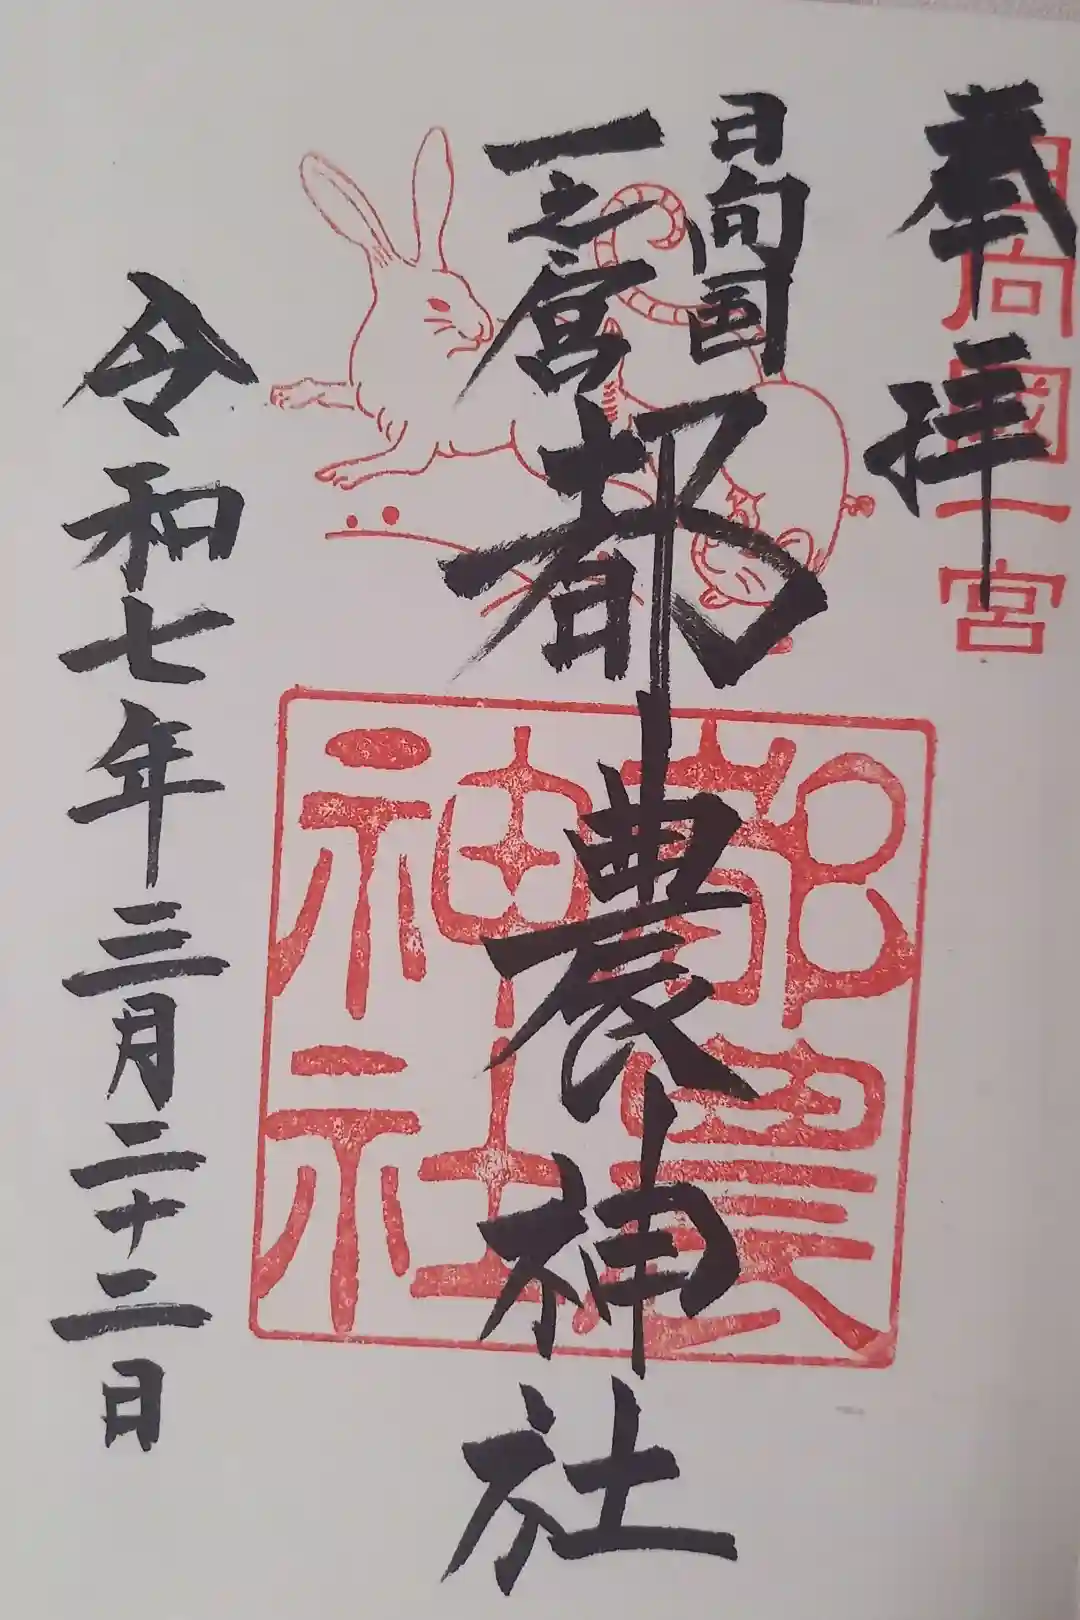 奉拝
日向國一宮
日向国
一之宮
都農神社
都農神社
令和七年三月二十二日